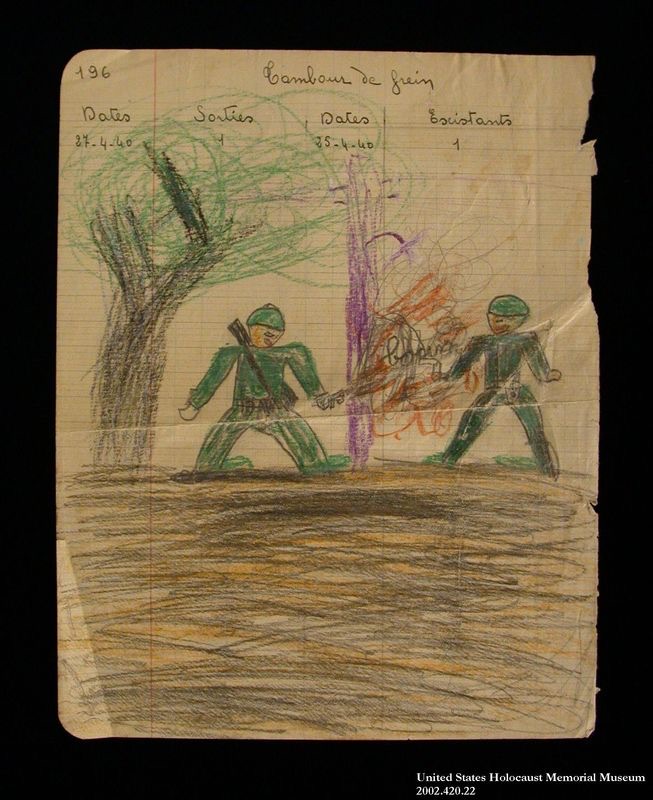 196
Tambour de frein
Dates Sorties Dates Existants
27-4-40 1 25-4-40 1
United States Holocaust Memorial Museum
2002.420.22